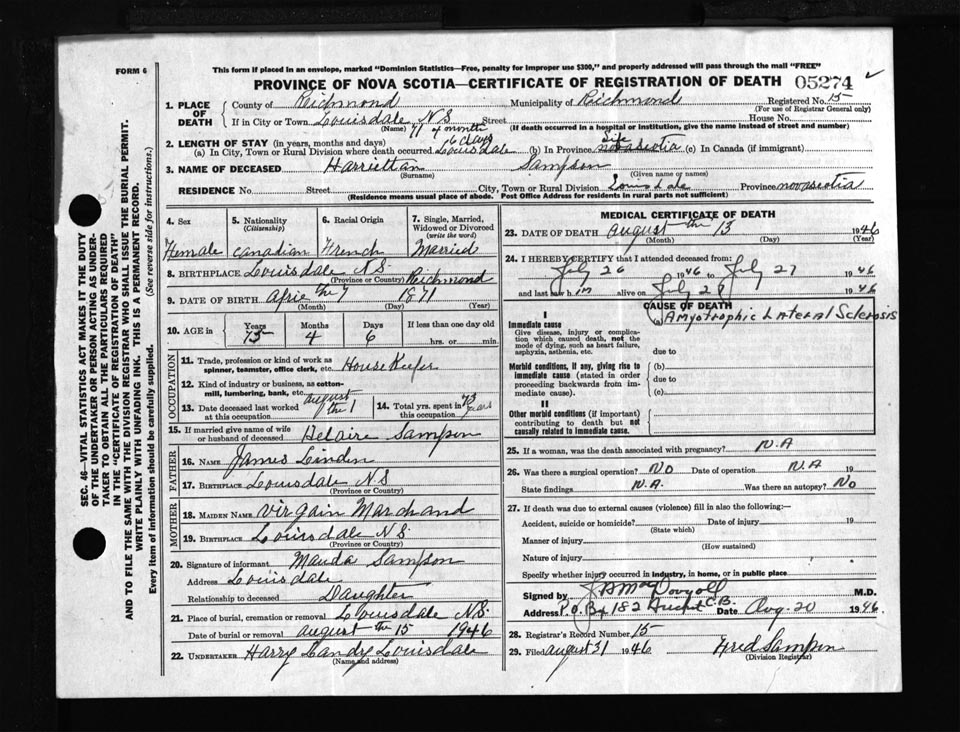 This form if placed in an envelope, marked "Dominion Statistics—Free, penalty for improper use $300," and properly addressed will pass through the mail "FREE"
FORM 6
PROVINCE OF NOVA SCOTIA—CERTIFICATE OF REGISTRATION OF DEATH 05274
1. PLACE OF DEATH
County of Richmond Municipality of Richmond Registered No. 15
(For use of Registrar General only)
If in City or Town Louisdale N S Street House No.
(Name) (If death occurred in a hospital or institution, give the name instead of street and number)
71 4 month 6 days Life
2. LENGTH OF STAY (in years, months and days)
(a) In City, Town or Rural Division where death occurred Louisdale (b) In Province novascotia (c) In Canada (if immigrant)
3. NAME OF DECEASED Harriettan Sampson
(Surname) (Given name or names)
RESIDENCE No Street City, Town or Rural Division Louisdale Province novascotia
(Residence means usual place of abode. Post Office Address for residents in rural parts not sufficient)
4. Sex
Female
5. Nationality
(Citizenship)
canadian
6. Racial Origin
French
7. Single, Married, Widowed or Divorced
(write the word)
Married
8. BIRTHPLACE Louisdale N.S. Richmond
(Province or Country)
9. DATE OF BIRTH the 7 1871
(Month) (Day) (Year)
10. AGE in
Years Months Days If less than one day old
75 4 6 hrs. or min.
OCCUPATION
11. Trade, profession or kind of work as spinner, teamster, office clerk, etc. House Keefer
12. Kind of industry or business, as cotton-mill, lumbering, bank, etc.
13. Date deceased last worked at this occupation august the 1
14. Total yrs. spent in this occupation years
15. If married give name of wife or husband of deceased Helaire Sampson
FATHER
16. NAME James Linden
17. BIRTHPLACE Louisdale N.S
(Province or Country)
MOTHER
18. MAIDEN NAME virgain Marchand
19. BIRTHPLACE Louisdale N.S.
(Province or Country)
20. Signature of informant Mauda Sampson
Address Louisdale
Relationship to deceased Daughter
21. Place of burial, cremation or removal Louisdale N.S.
Date of burial or removal august the 15 1946
22. UNDERTAKER Harry Landry Louisdale
(Name and address)
MEDICAL CERTIFICATE OF DEATH
23. DATE OF DEATH august the 13 1946
(Month) (Day) (Year)
24. I HEREBY CERTIFY that I attended deceased from:
July 26 1946 to July 27 1946
and last saw h im alive on July 27 1946
CAUSE OF DEATH
I
Immediate cause
Give disease, injury or complication which caused death, not the mode of dying, such as heart failure, asphyxia, asthenia, etc.
(a) Amyotrophic Lateral Sclerosis
due to
Morbid conditions, if any, giving rise to immediate cause (stated in order proceeding backwards from immediate cause).
(b)
due to
(c)
II
Other morbid conditions (if important) contributing to death but not causally related to immediate cause.
25. If a woman, was the death associated with pregnancy? N.A
26. Was there a surgical operation? No Date of operation N.A 19
State findings N.A. Was there an autopsy? No
27. If death was due to external causes (violence) fill in also the following:—
Accident, suicide or homicide? Date of injury 19
(State which)
Manner of injury
(How sustained)
Nature of injury
Specify whether injury occurred in industry, in home, or in public place
Signed by J A MacDougall M.D.
Address P.O. Bx 182 C.B. Date Aug. 20 1946
28. Registrar's Record Number 15
29. Filed august 31 1946 Fred Sampson
(Division Registrar)
SEC. 46—VITAL STATISTICS ACT MAKES IT THE DUTY
OF THE UNDERTAKER OR PERSON ACTING AS UNDER-
TAKER TO OBTAIN ALL THE PARTICULARS REQUIRED
IN THE "CERTIFICATE OF REGISTRATION OF DEATH"
AND TO FILE THE SAME WITH THE DIVISION REGISTRAR WHO SHALL ISSUE THE BURIAL PERMIT.
WRITE PLAINLY WITH UNFADING INK. THIS IS A PERMANENT RECORD.
Every item of information should be carefully supplied. (See reverse side for instructions.)